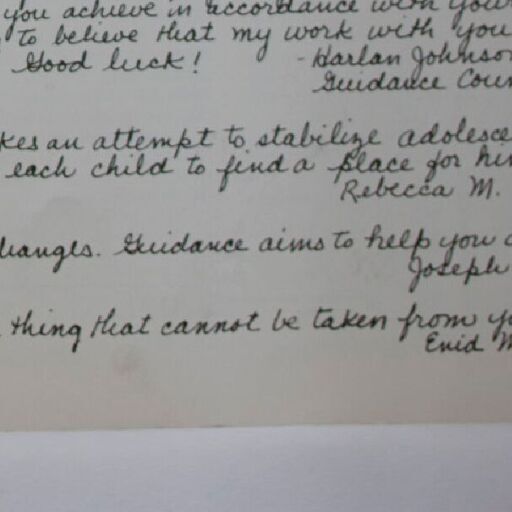 you achieve in accordance with your
to believe that my work with you
Good luck! - Harlan Johnson
Guidance Coun
kes an attempt to stabilize adolesce
each child to find a place for him
Rebecca M.
hanges. Guidance aims to help you
Joseph
thing that cannot be taken from yo
Enid M